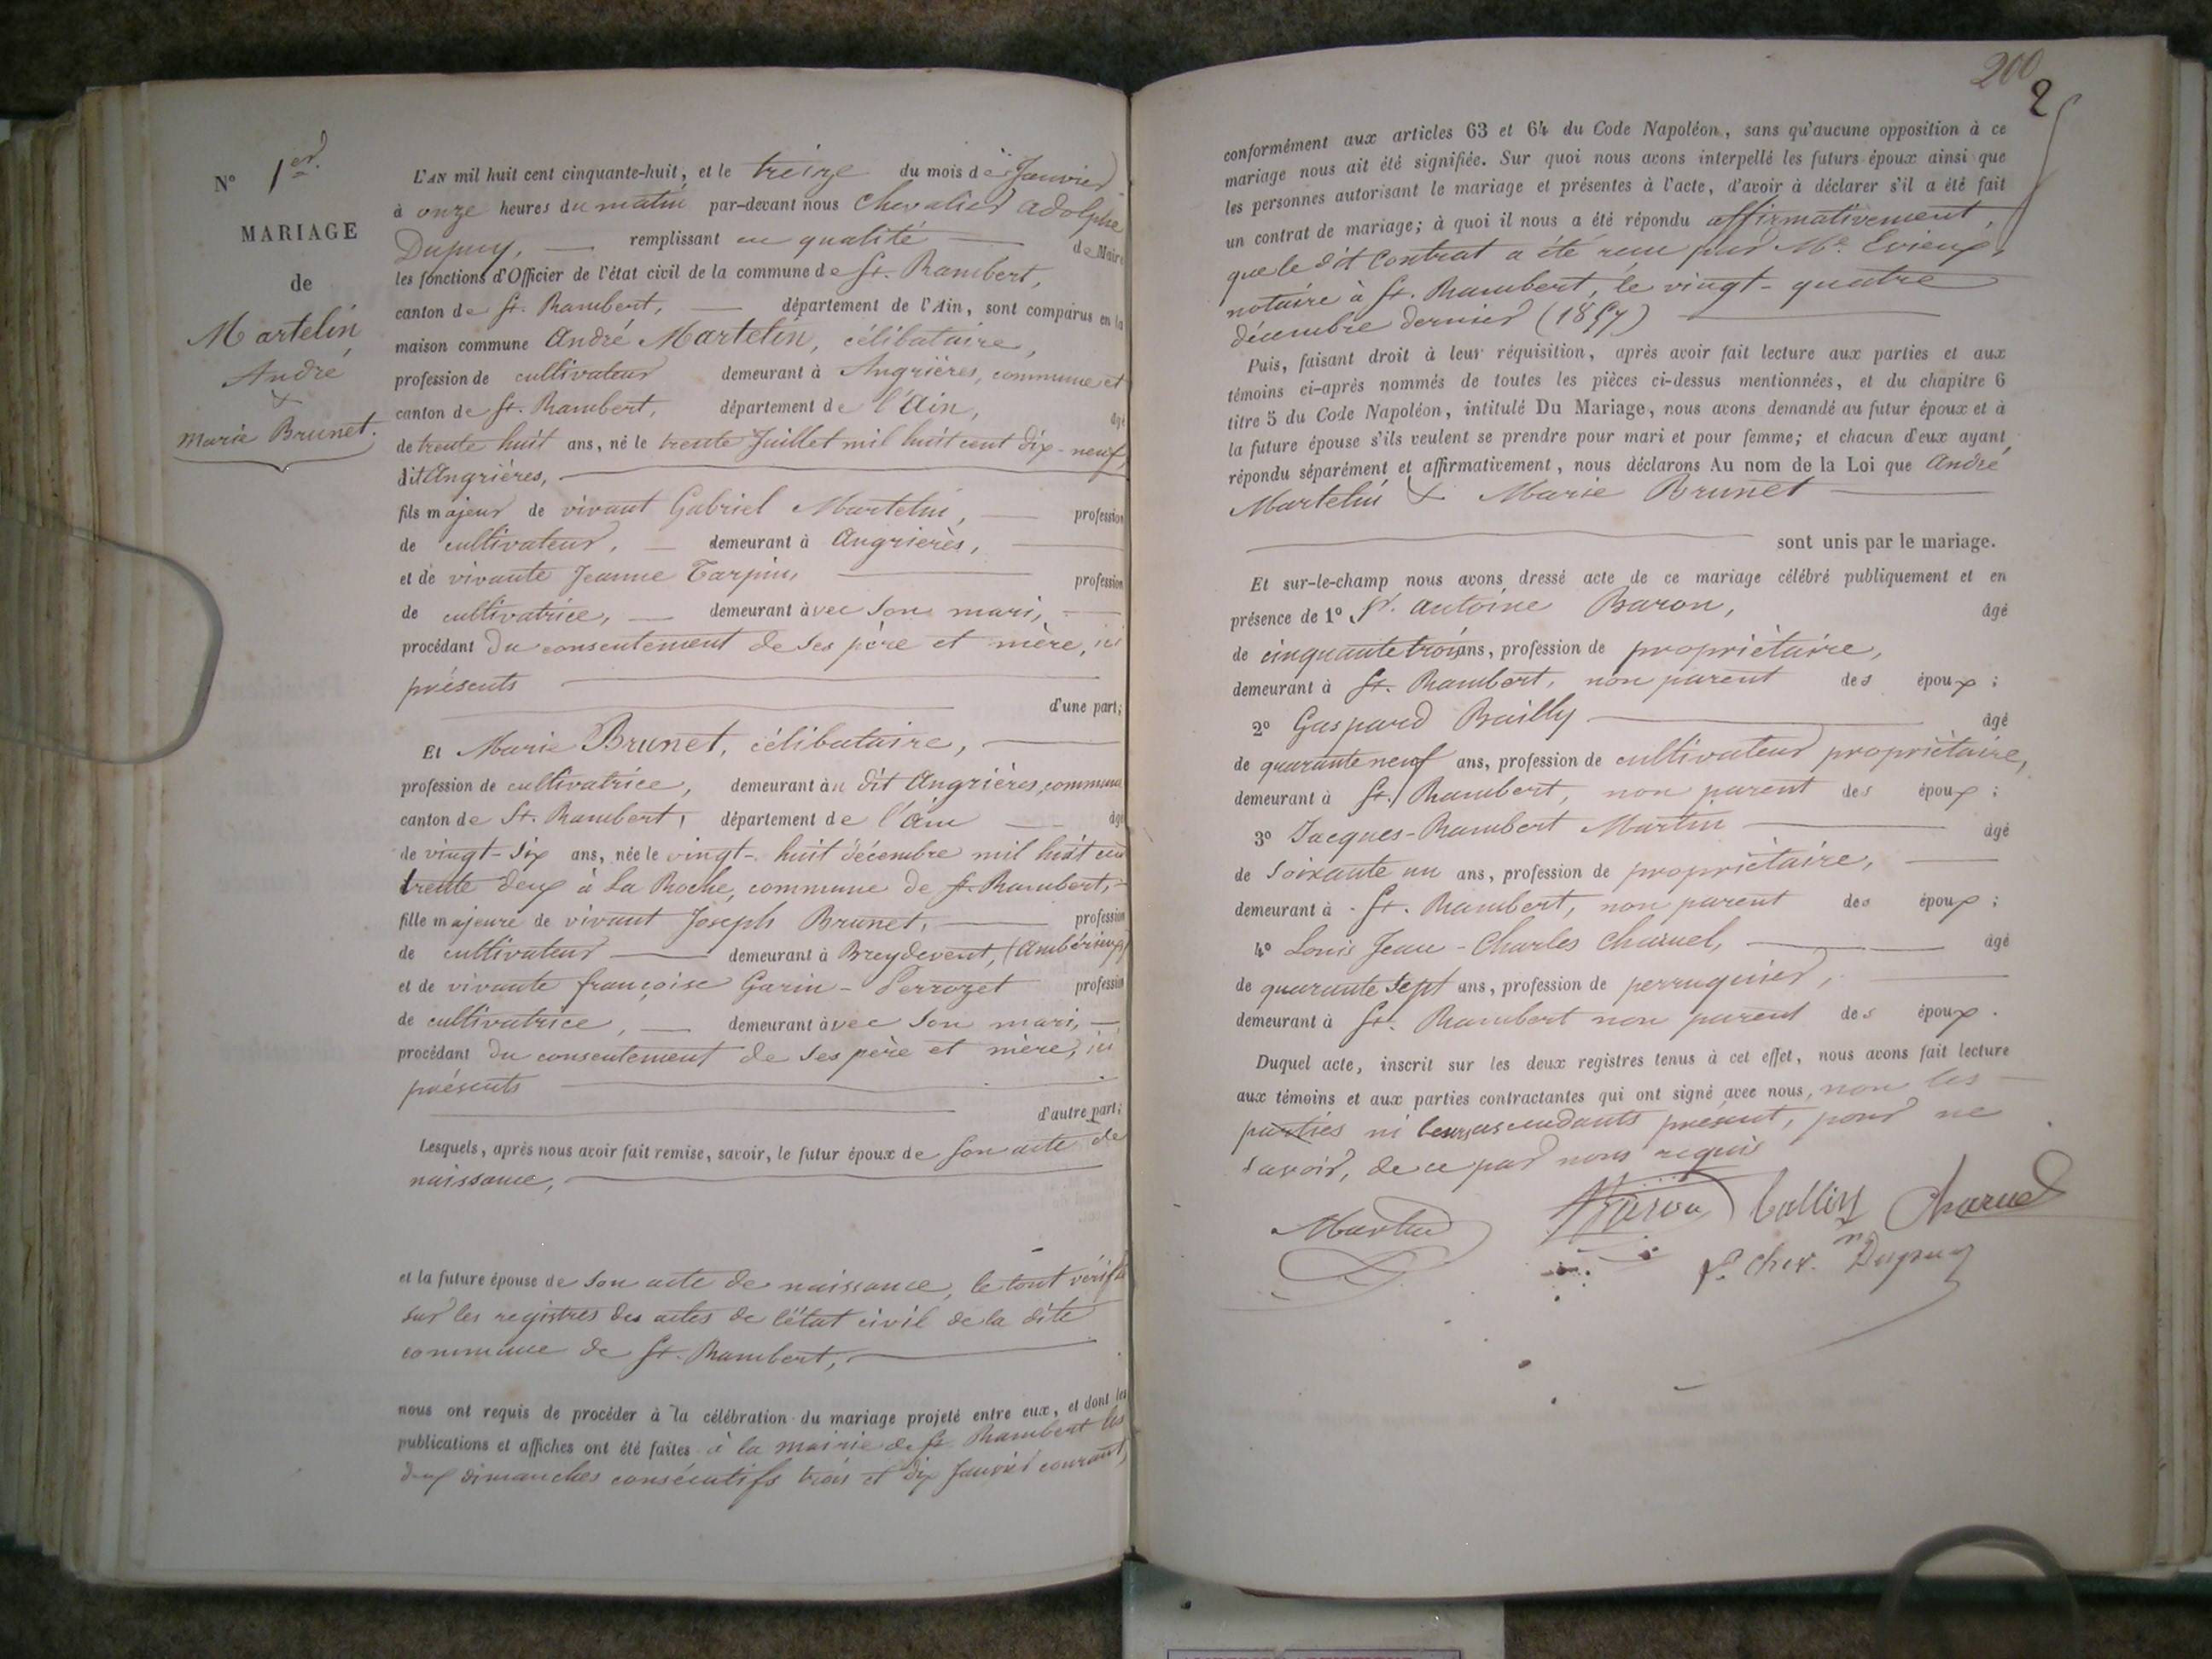 N° 1er.
MARIAGE
de
Martelin
André
&
Marie Brunet.
L'AN mil huit cent cinquante-huit, et le treize du mois de Janvier
à onze heures du matin par-devant nous Chevalier Adolphe
Dupuy, remplissant en qualité de Maire
les fonctions d'Officier de l'état civil de la commune de St. Rambert,
canton de St. Rambert, département de l'Ain, sont comparus en la
maison commune André Martelin, célibataire,
profession de cultivateur demeurant à Angrières, commune et
canton de St. Rambert, département de l'Ain, âgé
de trente huit ans, né le trente Juillet mil huit cent dix-neuf,
dit Angrières,
fils majeur de vivant Gabriel Martelin, profession
de cultivateur, demeurant à Angrières,
et de vivante Jeanne Tarpin, profession
de cultivatrice, demeurant avec son mari,
procédant du consentement de ses père et mère, ici
présents
d'une part;
Et Marie Brunet, célibataire,
profession de cultivatrice, demeurant au dit Angrières, commune
canton de St. Rambert, département de l'Ain âgé
de vingt-six ans, née le vingt-huit décembre mil huit cent
trente deux à La Roche, commune de St. Rambert,
fille majeure de vivant Joseph Brunet, profession
de cultivateur demeurant à Breydevent, (Ambérieux)
et de vivante françoise Garin-Perrozet profession
de cultivatrice, demeurant avec son mari,
procédant du consentement de ses père et mère, ici
présents
d'autre part;
Lesquels, après nous avoir fait remise, savoir, le futur époux de son acte de
naissance,
et la future épouse de son acte de naissance, le tout vérifié
sur les registres des actes de l'état civil de la dite
commune de St. Rambert,
nous ont requis de procéder à la célébration du mariage projeté entre eux, et dont les
publications et affiches ont été faites à la mairie de St Rambert les
deux dimanches consécutifs trois et dix Janvier courant,
200
2
conformément aux articles 63 et 64 du Code Napoléon, sans qu'aucune opposition à ce
mariage nous ait été signifiée. Sur quoi nous avons interpellé les futurs époux ainsi que
les personnes autorisant le mariage et présentes à l'acte, d'avoir à déclarer s'il a été fait
un contrat de mariage; à quoi il nous a été répondu affirmativement,
que le dit Contrat a été reçu par Me. Evieux,
notaire à St. Rambert, le vingt-quatre
décembre dernier (1857)
Puis, faisant droit à leur réquisition, après avoir fait lecture aux parties et aux
témoins ci-après nommés de toutes les pièces ci-dessus mentionnées, et du chapitre 6
titre 5 du Code Napoléon, intitulé Du Mariage, nous avons demandé au futur époux et à
la future épouse s'ils veulent se prendre pour mari et pour femme; et chacun d'eux ayant
répondu séparément et affirmativement, nous déclarons Au nom de la Loi que André
Martelin & Marie Brunet
sont unis par le mariage.
Et sur-le-champ nous avons dressé acte de ce mariage célébré publiquement et en
présence de 1° Sr. Antoine Baron, âgé
de cinquante trois ans, profession de propriétaire,
demeurant à St. Rambert, non parent des époux;
2° Gaspard Bailly âgé
de quarante neuf ans, profession de cultivateur propriétaire,
demeurant à St. Rambert, non parent des époux;
3° Jacques-Rambert Martin âgé
de soixante un ans, profession de propriétaire,
demeurant à St. Rambert, non parent des époux;
4° Louis Jean-Charles Charuel, âgé
de quarante sept ans, profession de perruquier,
demeurant à St. Rambert non parent des époux.
Duquel acte, inscrit sur les deux registres tenus à cet effet, nous avons fait lecture
aux témoins et aux parties contractantes qui ont signé avec nous, non les
parties ni leurs ascendants présent, pour ne
savoir, de ce par nous requis
Martin Baron Charuel
Dupuy